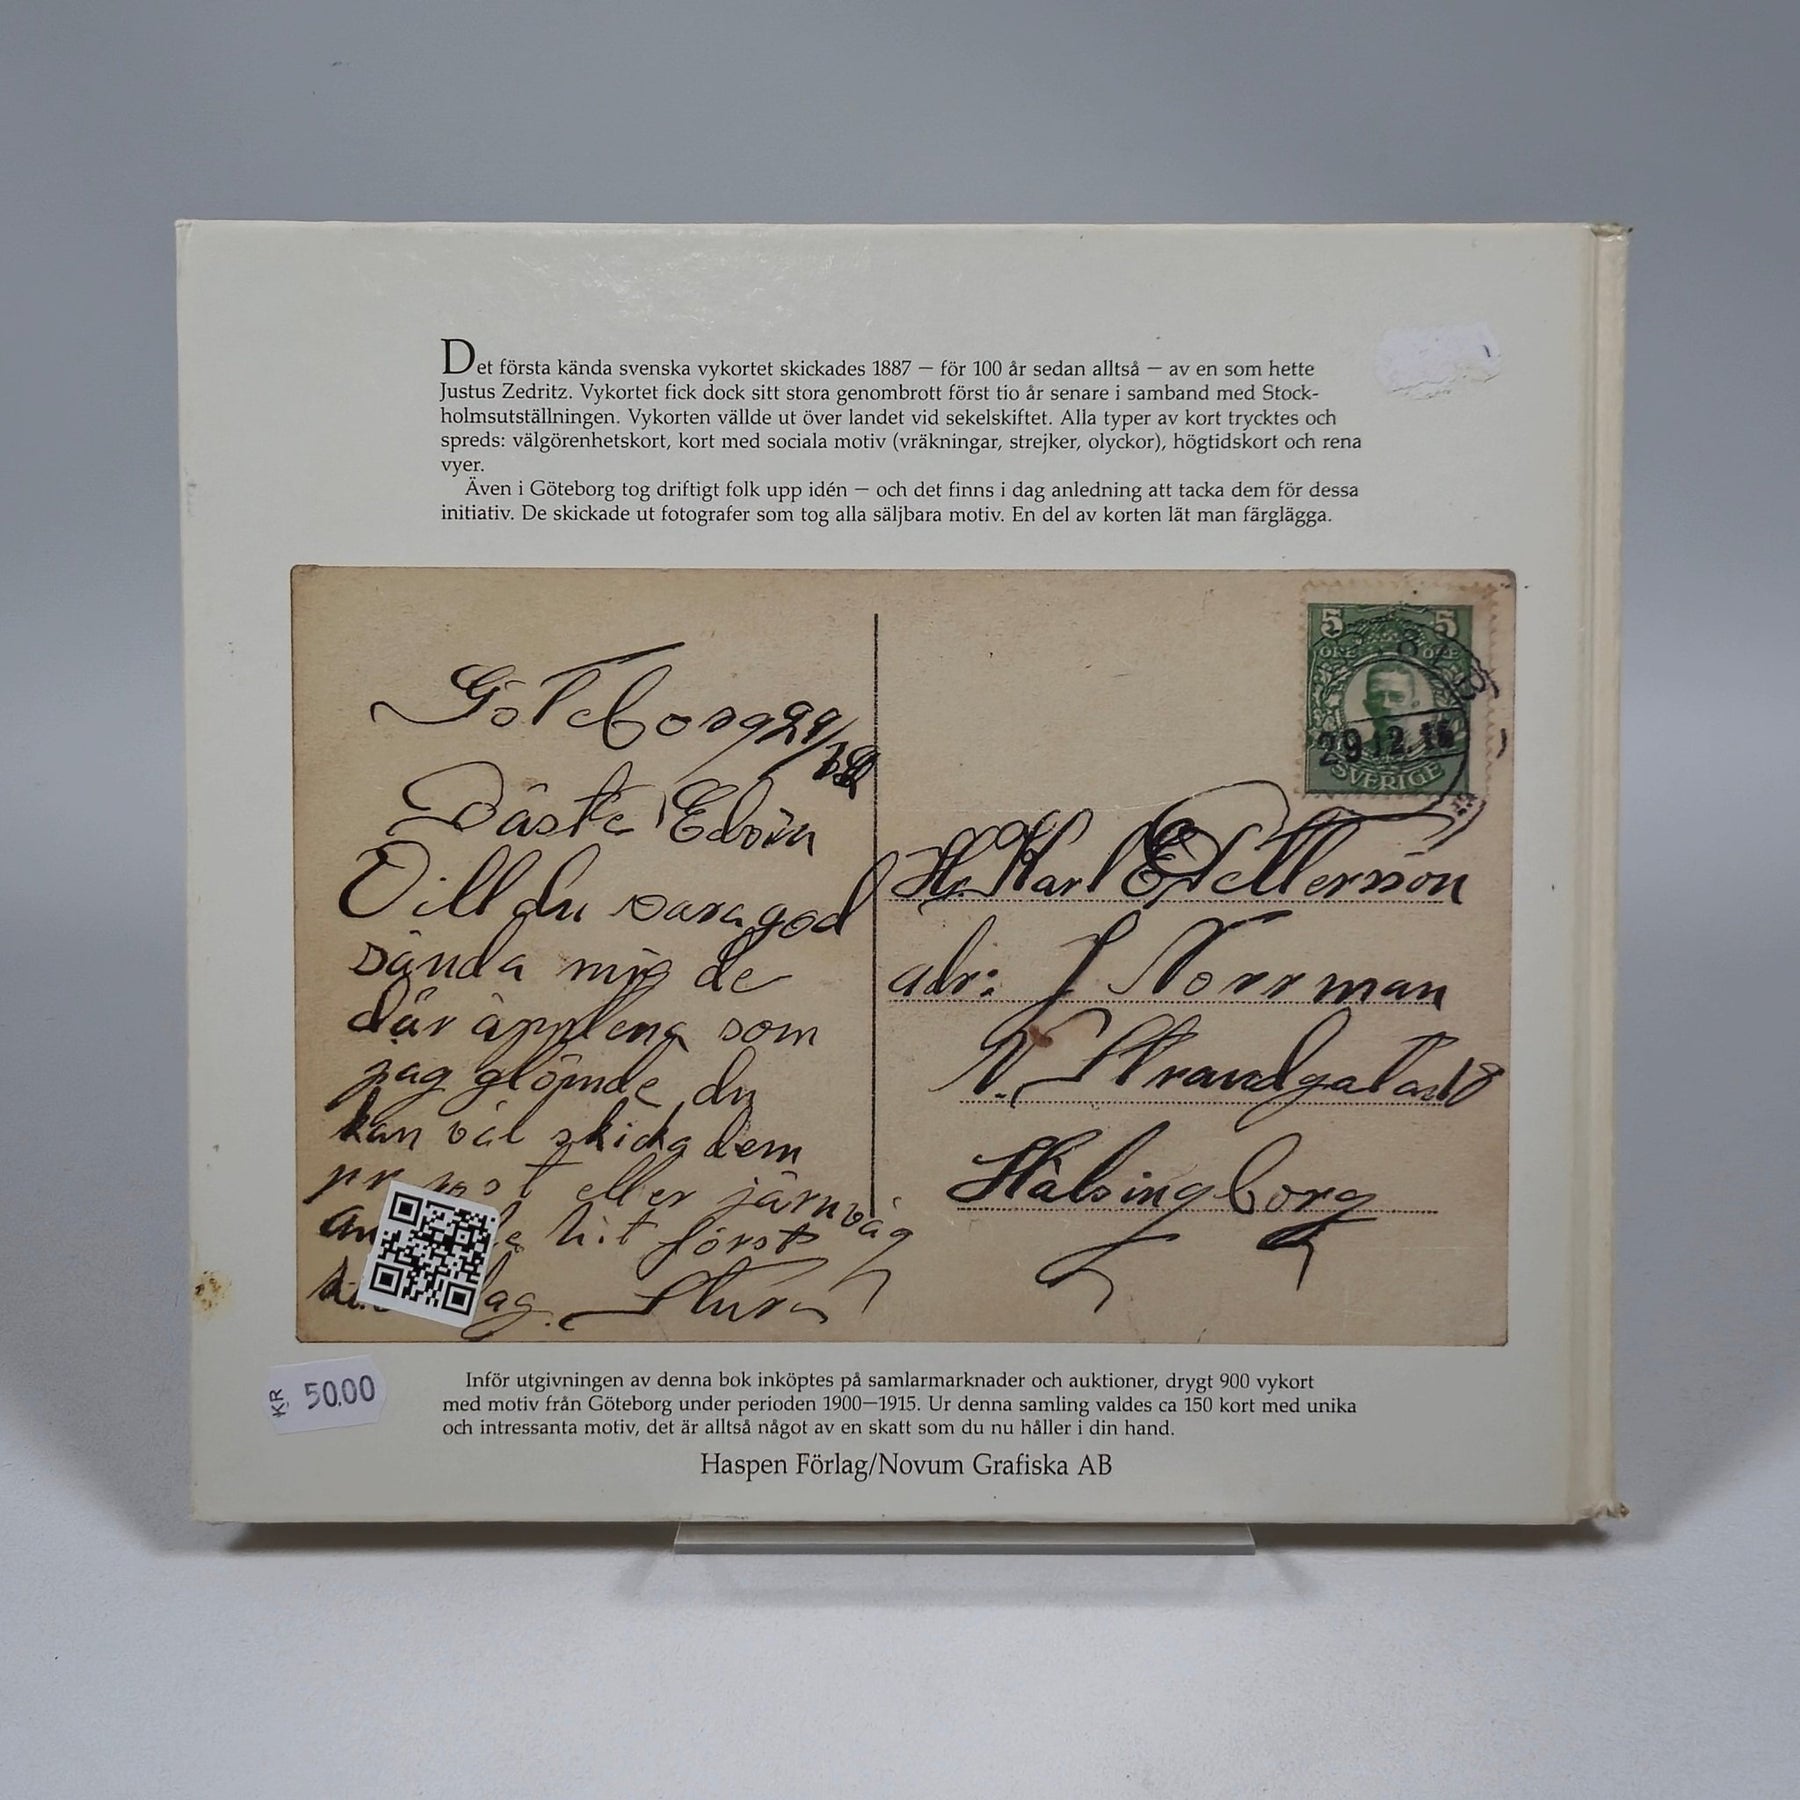 Det första kända svenska vykortet skickades 1887 — för 100 år sedan alltså — av en som hette
Justus Zedritz. Vykortet fick dock sitt stora genombrott först tio år senare i samband med Stock-
holmsutställningen. Vykorten vällde ut över landet vid sekelskiftet. Alla typer av kort trycktes och
spreds: välgörenhetskort, kort med sociala motiv (vräkningar, strejker, olyckor), högtidskort och rena
vyer.
Även i Göteborg tog driftigt folk upp idén — och det finns i dag anledning att tacka dem för dessa
initiativ. De skickade ut fotografer som tog alla säljbara motiv. En del av korten lät man färglägga.
Göteborg 29/12
Bäste Edvin
Vill du vara god
sända mig de
där äpplena som
jag glömde du
kan väl skicka dem
pr post eller järnväg
hit först
dag. Sture
5 5
ÖRE ÖRE
29.12.15
SVERIGE
Hr Karl E Pettersson
adr: J Norrman
N. Strandgatan 18
Hälsingborg
KR 50.00
Inför utgivningen av denna bok inköptes på samlarmarknader och auktioner, drygt 900 vykort
med motiv från Göteborg under perioden 1900—1915. Ur denna samling valdes ca 150 kort med unika
och intressanta motiv, det är alltså något av en skatt som du nu håller i din hand.
Haspen Förlag/Novum Grafiska AB